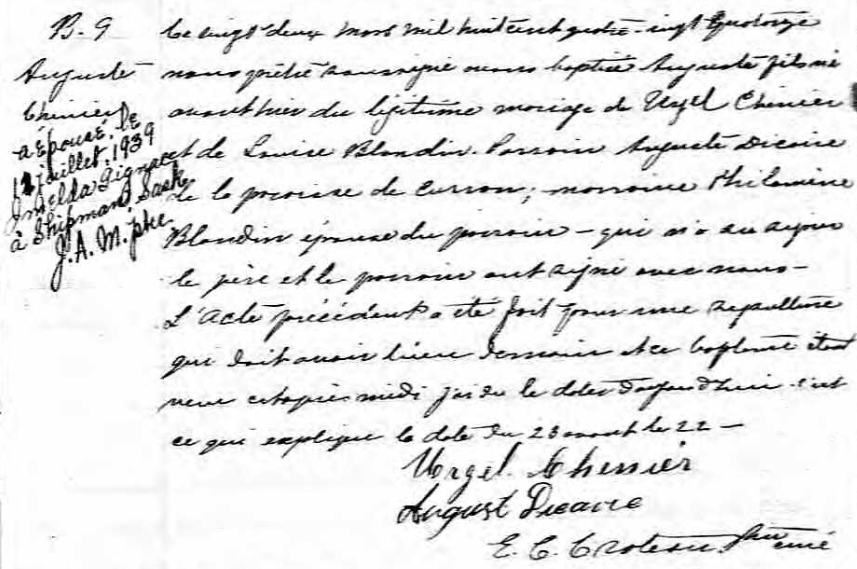 B. 9
Auguste
Chénier
a épousé, le
12 juillet, 1939
Imelda Gignac
à Shipman, Sask.
J. A. M. ptre
Le vingt deux mars mil huit cent quatre-vingt quatorze
nous prêtre soussigné avons baptisé Auguste fils né
avant hier du légitime mariage de Urgel Chénier
et de Louise Blondin. Parrain Auguste Dicaire
de la paroisse de Curran; marraine Philomène
Blondin épouse du parrain - qui n'a su signer
le père et le parrain ont signé avec nous -
L'Acte précédent a été fait pour une sepulture
qui doit avoir lieu demain et ce baptême étant
venu cet après midi j'ai du le dater d'aujourd'hui c'est
ce qui explique la date du 23 avant le 22 -
Urgel Chenier
August Dicaire
E. C. Croteau ptre curé